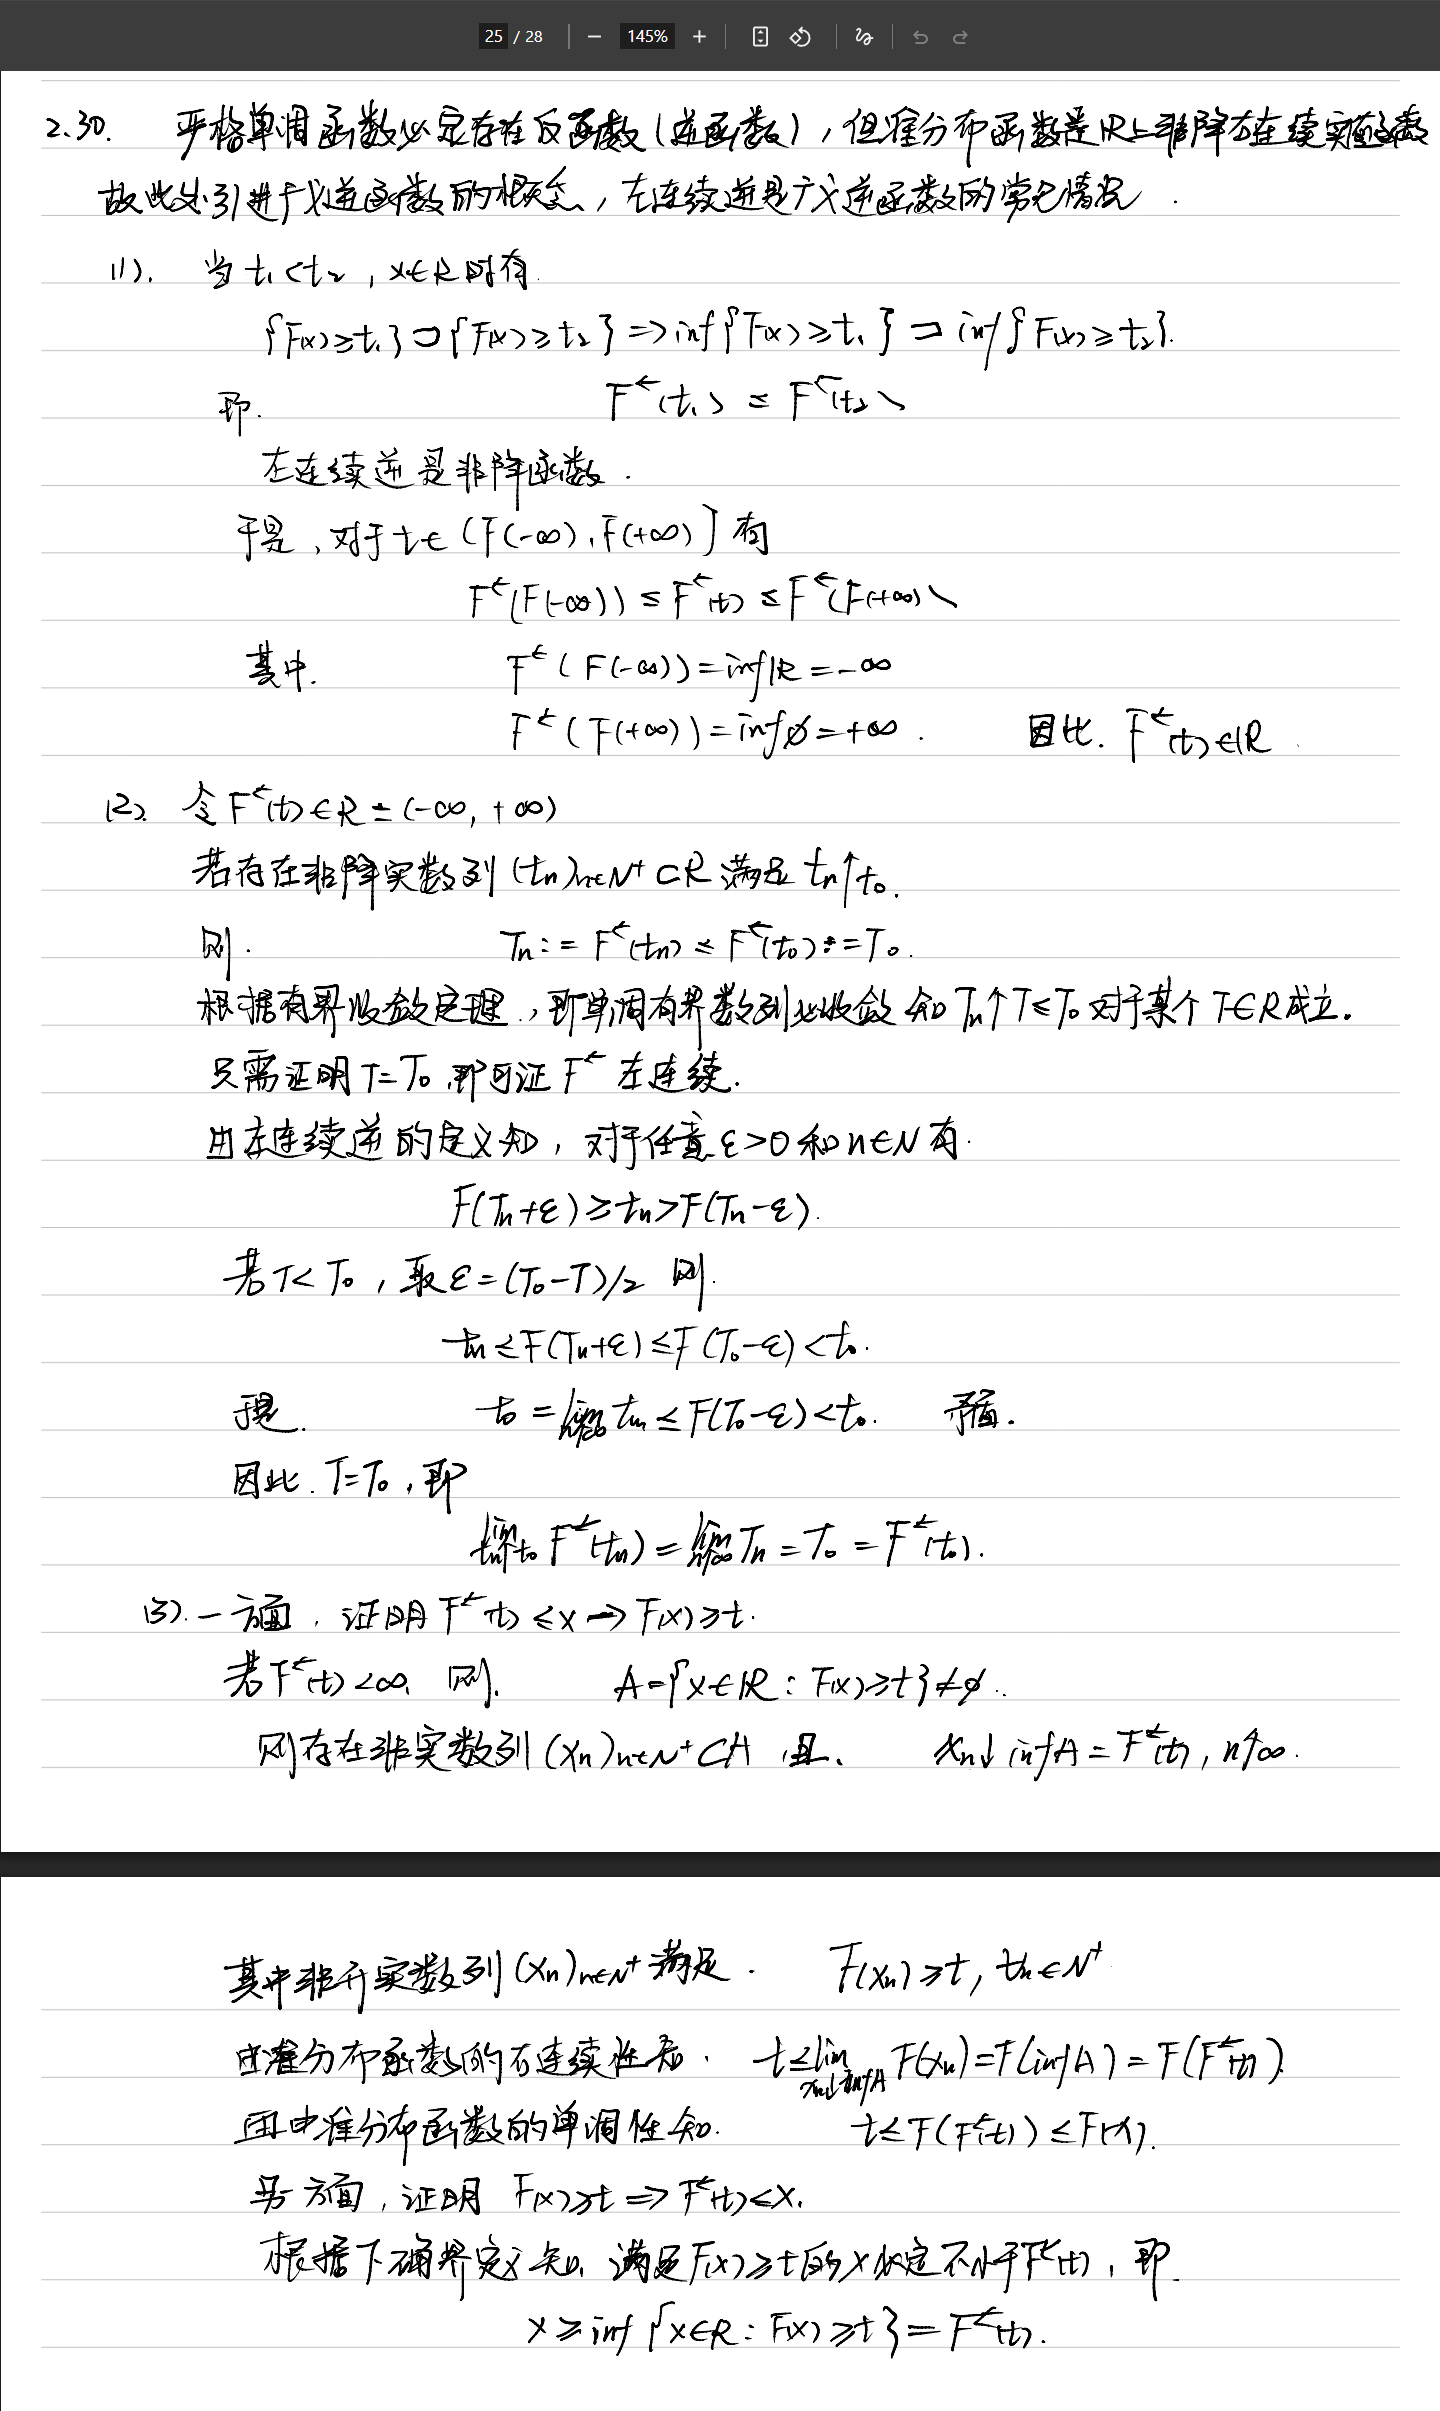 25 / 28 145%
2.30. 严格单调函数必定存在反函数(逆函数),但准分布函数是IR上非降右连续实值函数
故此处引进广义逆函数的概念,左连续逆是广义逆函数的常见情况.
(1). 当 t₁<t₂, x∈R时有.
{F(x)≥t₁}⊃{F(x)≥t₂}⇒inf{F(x)≥t₁}⊃inf{F(x)≥t₂}.
即. F^←(t₁) ≤ F^←(t₂)
左连续逆是非降函数.
于是,对于t∈(F(-∞),F(+∞)]有
F^←(F(-∞)) ≤ F^←(t) ≤ F^←(F(+∞))
其中. F^←(F(-∞))=inf IR=-∞
F^←(F(+∞))=inf∅=+∞. 因此. F^←(t)∈IR.
(2). 令F^←(t)∈R=(-∞,+∞)
若存在非降实数列(tn)n∈N⁺⊂R满足tn↑t₀.
则. Tn:=F^←(tn)≤F^←(t₀):=T₀.
根据有界收敛定理,即单调有界数列必收敛知Tn↑T≤T₀对于某个T∈R成立.
只需证明T=T₀,即可证F^←左连续.
由左连续逆的定义知,对于任意ε>0和n∈N有.
F(Tn+ε)≥tn>F(Tn-ε).
若T<T₀,取ε=(T₀-T)/2 则.
tn≤F(Tn+ε)≤F(T₀-ε)<t₀.
于是. t₀=lim n↑∞ tn≤F(T₀-ε)<t₀. 矛盾.
因此.T=T₀,即
lim tn↑t₀ F^←(tn)=lim n↑∞ Tn=T₀=F^←(t₀).
(3).一方面,证明F^←(t)≤x→F(x)≥t.
若F^←(t)<∞, 则. A={x∈IR:F(x)≥t}≠∅.
则存在非实数列(xn)n∈N⁺⊂A 且. xn↓infA=F^←(t), n↑∞.
其中非升实数列(xn)n∈N⁺满足. F(xn)≥t, ∀n∈N⁺
由准分布函数的右连续性知. t≤lim xn↓infA F(xn)=F(infA)=F(F^←(t)).
再由准分布函数的单调性知. t≤F(F^←(t))≤F(x).
另一方面,证明 F(x)≥t⇒F^←(t)≤x.
根据下确界定义知,满足F(x)≥t的x必定不小于F^←(t),即
x≥inf{x∈R:F(x)≥t}=F^←(t).